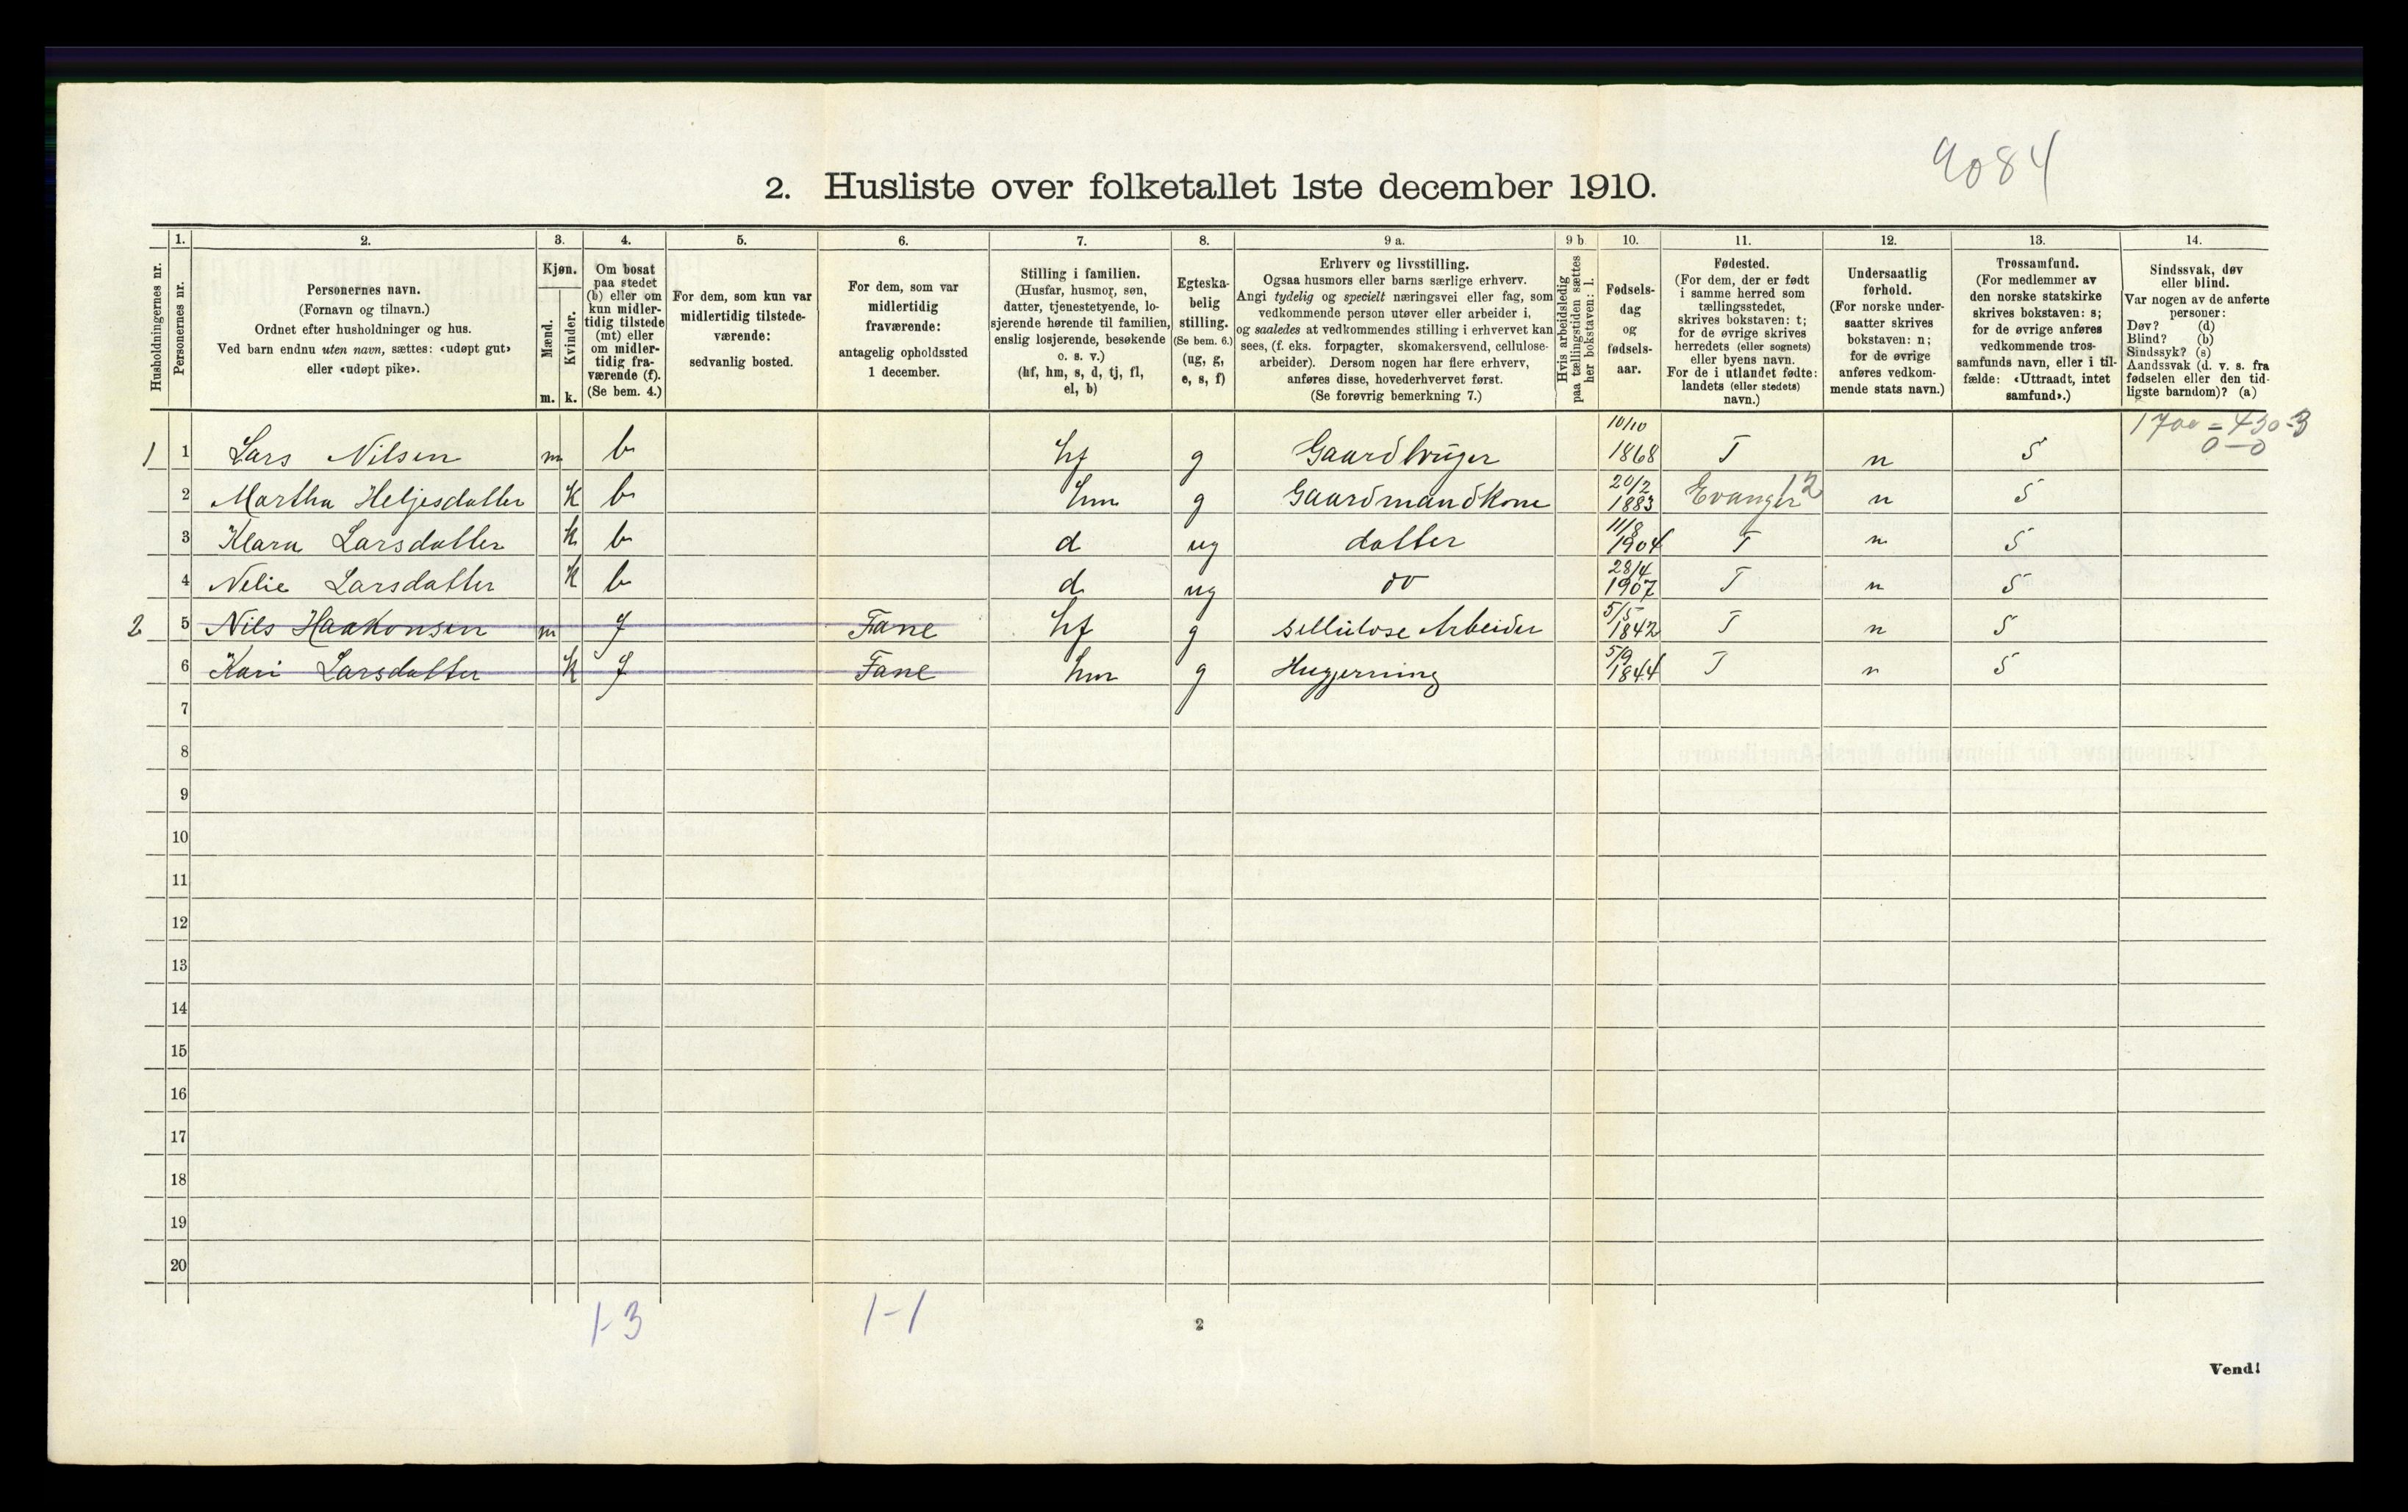 9084
2. Husliste over folketallet 1ste december 1910.
Husholdningernes nr.
1.
Personernes nr.
2.
Personernes navn.
(Fornavn og tilnavn.)
Ordnet efter husholdninger og hus.
Ved barn endnu uten navn, sættes: «udøpt gut»
eller «udøpt pike».
3.
Kjøn.
Mænd.
Kvinder.
m. k.
4.
Om bosat
paa stedet
(b) eller om
kun midler-
tidig tilstede
(mt) eller
om midler-
tidig fra-
værende (f).
(Se bem. 4.)
5.
For dem, som kun var
midlertidig tilstede-
værende:
sedvanlig bosted.
6.
For dem, som var
midlertidig
fraværende:
antagelig opholdssted
1 december.
7.
Stilling i familien.
(Husfar, husmor, søn,
datter, tjenestetyende, lo-
sjerende hørende til familien,
enslig losjerende, besøkende
o. s. v.)
(hf, hm, s, d, tj, fl,
el, b)
8.
Egteska-
belig
stilling.
(Se bem. 6.)
(ug, g,
e, s, f)
9 a.
Erhverv og livsstilling.
Ogsaa husmors eller barns særlige erhverv.
Angi tydelig og specielt næringsvei eller fag, som
vedkommende person utøver eller arbeider i,
og saaledes at vedkommendes stilling i erhvervet kan
sees, (f. eks. forpagter, skomakersvend, cellulose-
arbeider). Dersom nogen har flere erhverv,
anføres disse, hovederhvervet først.
(Se forøvrig bemerkning 7.)
9 b
Hvis arbeidsledig
paa tællingstiden sættes
her bokstaven: l.
10.
Fødsels-
dag
og
fødsels-
aar.
11.
Fødested.
(For dem, der er født
i samme herred som
tællingsstedet,
skrives bokstaven: t;
for de øvrige skrives
herredets (eller sognets)
eller byens navn.
For de i utlandet fødte:
landets (eller stedets)
navn.)
12.
Undersaatlig
forhold.
(For norske under-
saatter skrives
bokstaven: n;
for de øvrige
anføres vedkom-
mende stats navn.)
13.
Trossamfund.
(For medlemmer av
den norske statskirke
skrives bokstaven: s;
for de øvrige anføres
vedkommende tros-
samfunds navn, eller i til-
fælde: «Uttraadt, intet
samfund».)
14.
Sindssvak, døv
eller blind.
Var nogen av de anførte
personer:
Døv? (d)
Blind? (b)
Sindssyk? (s)
Aandssvak (d. v. s. fra
fødselen eller den tid-
ligste barndom)? (a)
1700 = 430-3
0-0
1 1 Lars Nilsen m b hf g Gaardbruger 10/10 1868 T n S
2 Martha Heljesdatter K b hm g Gaardmandkone 20/2 1883 Evanger 12 n S
3 Klara Larsdatter K b d ug datter 11/8 1904 T n S
4 Nelie Larsdatter K b d ug do 28/4 1907 T n S
2 5 Nils Haakonsen m f Fane hf g sellulose Arbeider 5/5 1842 T n S
6 Kari Larsdatter K f Fane hm g Hugjerning 5/9 1844 T n S
7
8
9
10
11
12
13
14
15
16
17
18
19
20
1-3
1-1
2
Vend!